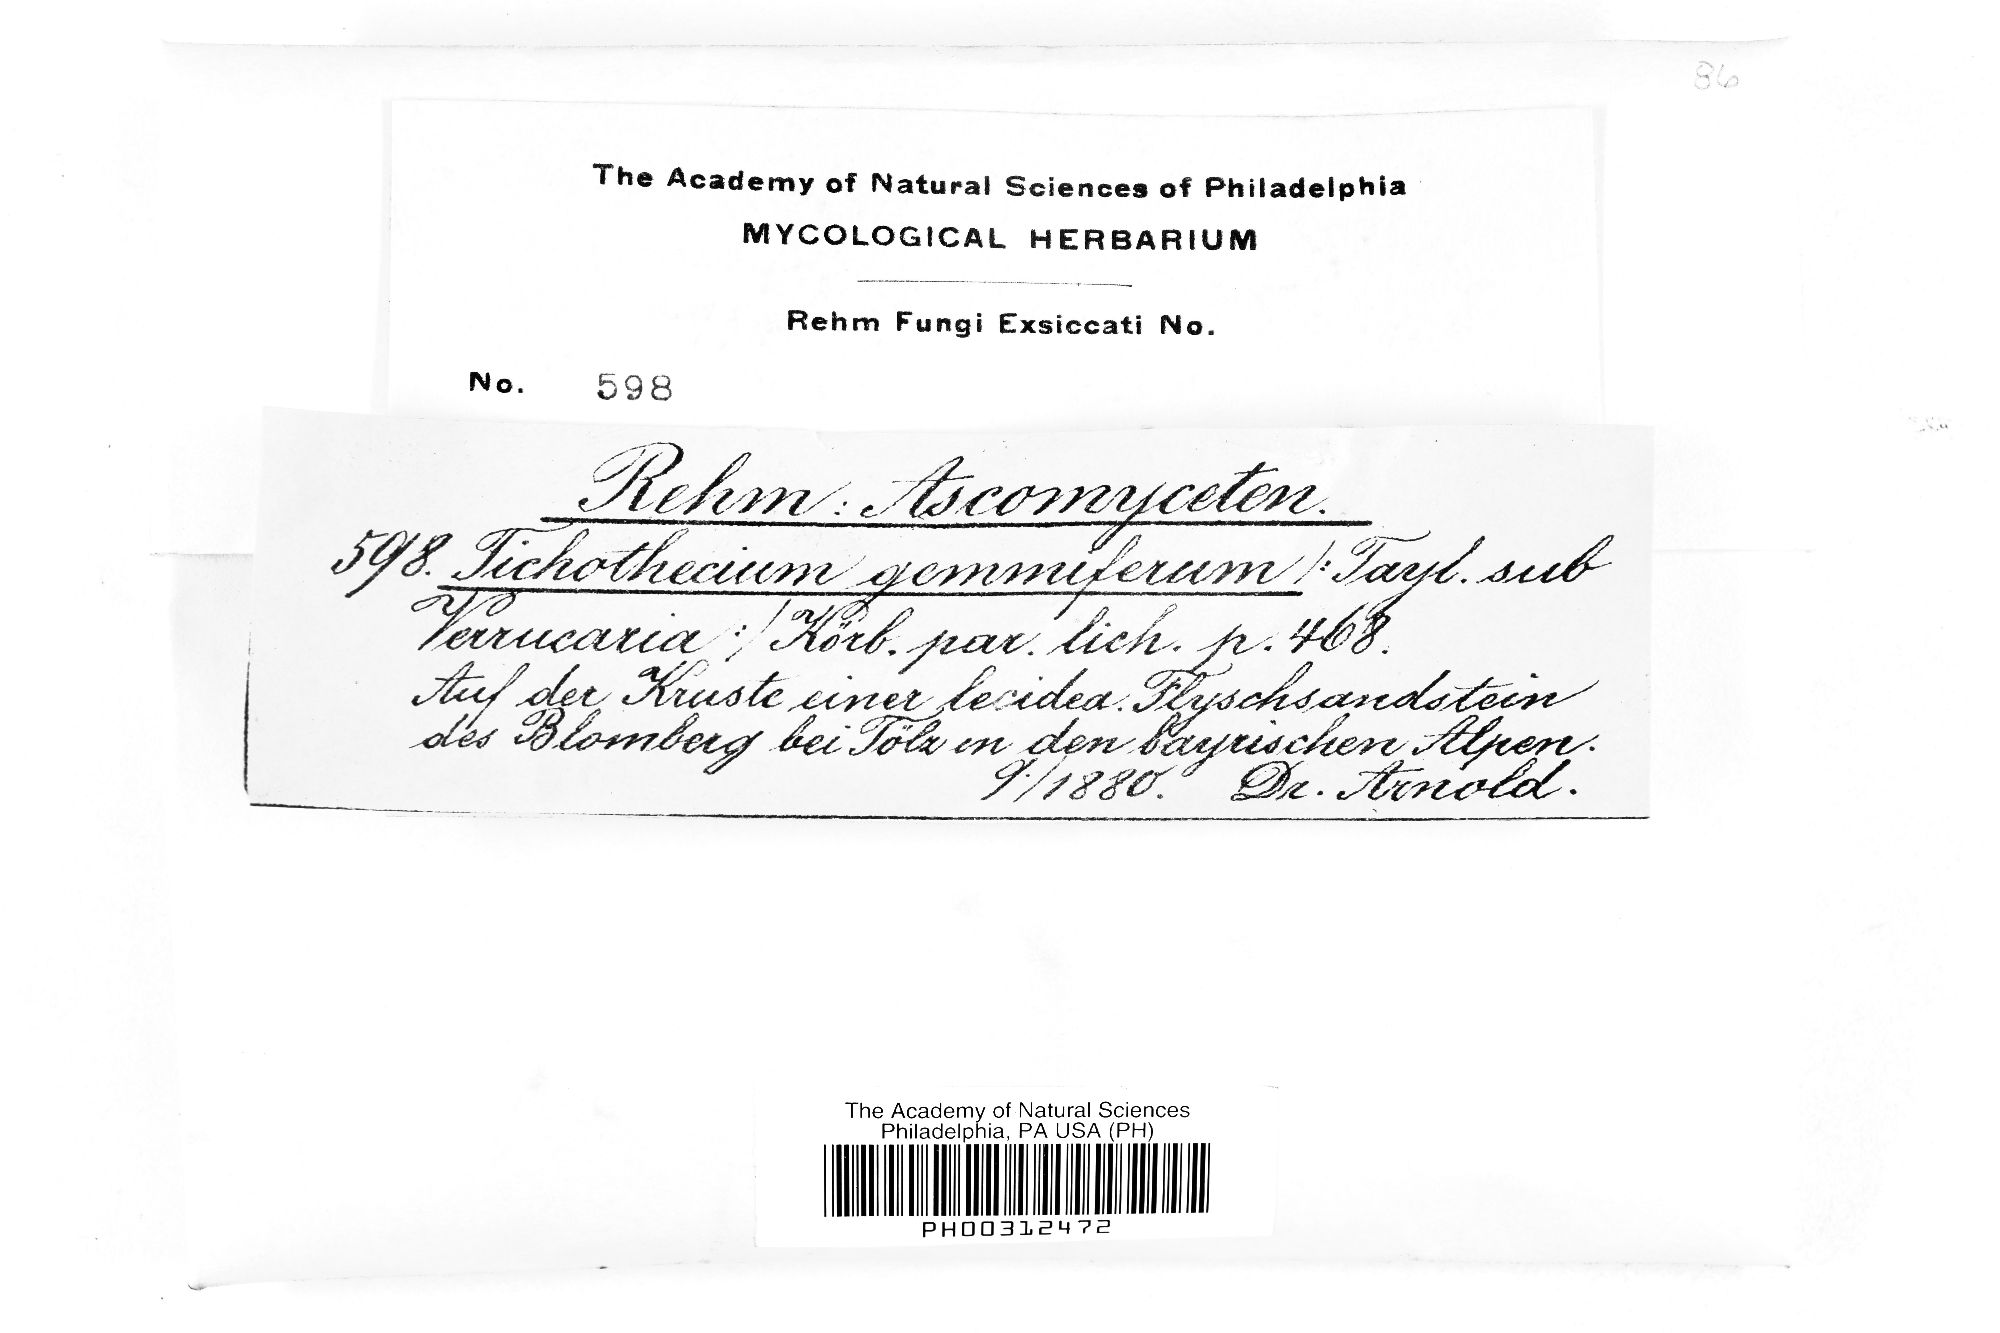 86
The Academy of Natural Sciences of Philadelphia
MYCOLOGICAL HERBARIUM
Rehm Fungi Exsiccati No.
No. 598
Rehm: Ascomyceten.
598. Tichothecium gemmiferum /: Tayl. sub
Verrucaria :/ Körb. par. lich. p. 468.
Auf der Kruste einer lecidea. Flyschsandstein
des Blomberg bei Tölz in den bayrischen Alpen.
9./1880. Dr. Arnold.
The Academy of Natural Sciences
Philadelphia, PA USA (PH)
PH00312472